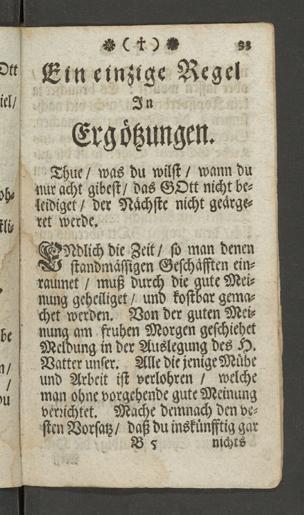 ❋ ( † ) ❋ 33
Ein einzige Regel
In
Ergötzungen.
Thue / was du wilst / wann du
nur acht gibest / das GOtt nicht be-
leidiget / der Nächste nicht geärge-
ret werde.
ENdlich die Zeit / so man denen
standmässigen Geschäfften ein-
raumet / muß durch die gute Mei-
nung geheiliget / und kostbar gema-
chet werden. Von der guten Mei-
nung am fruhen Morgen geschiehet
Meldung in der Auslegung des H.
Vatter unser. Alle die jenige Mühe
und Arbeit ist verlohren / welche
man ohne vorgehende gute Meinung
verrichtet. Mache demnach den ve-
sten Vorsatz / daß du inskünfftig gar
B 5 nichts